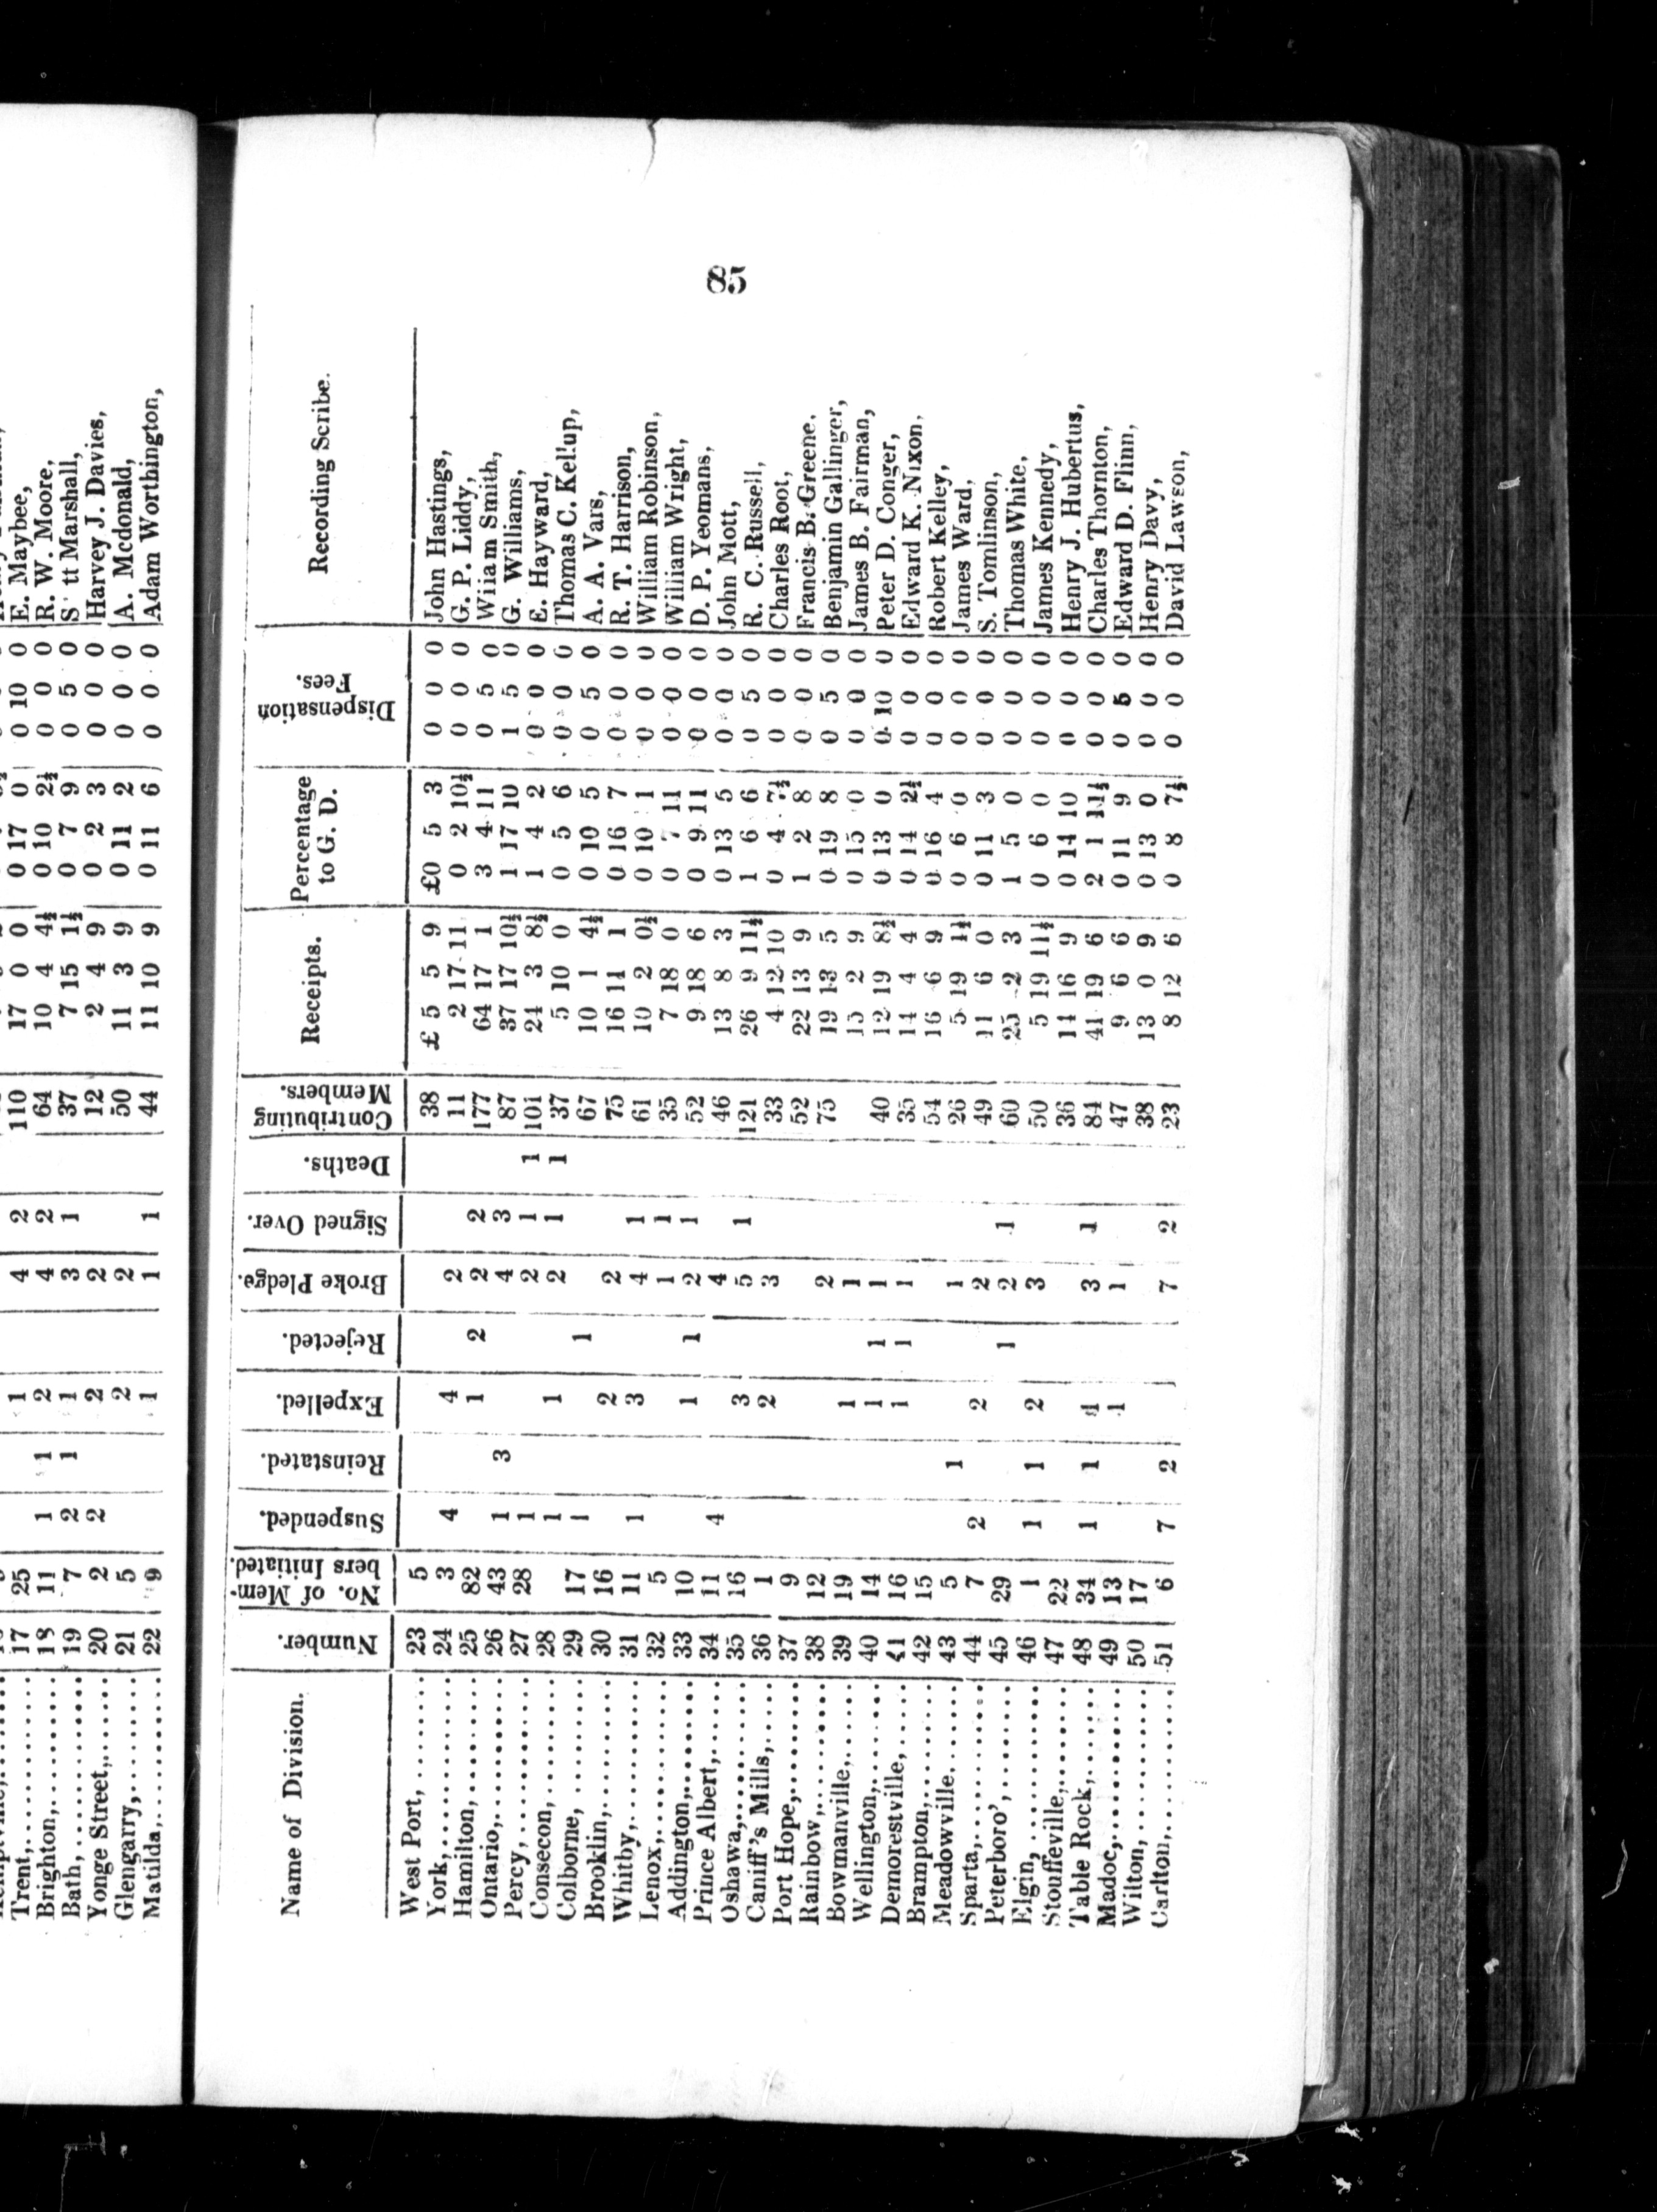 Trent, 17 25 1 4 2 110 17 0 0 0 17 0 0 10 0 E. Maybee,
Brighton, 18 11 1 1 2 4 2 64 10 4 4½ 0 10 2½ 0 0 0 R. W. Moore,
Bath, 19 7 2 1 1 3 1 37 7 15 1½ 0 7 9 0 5 0 S tt Marshall,
Yonge Street, 20 2 2 2 2 12 2 4 9 0 2 3 0 0 0 Harvey J. Davies,
Glengarry, 21 5 2 2 50 11 3 9 0 11 2 0 0 0 A. Mcdonald,
Matilda, 22 9 1 1 1 44 11 10 9 0 11 6 0 0 0 Adam Worthington,
85
Name of Division. Number. No. of Members Initiated. Suspended. Reinstated. Expelled. Rejected. Broke Pledge. Signed Over. Deaths. Contributing Members. Receipts. Percentage to G. D. Dispensation Fees. Recording Scribe.
West Port, 23 5 38 £ 5 5 9 £0 5 3 0 0 0 John Hastings,
York, 24 3 4 4 2 11 2 17 11 0 2 10½ 0 0 0 G. P. Liddy,
Hamilton, 25 82 1 2 2 2 177 64 17 1 3 4 11 0 5 0 Wiiam Smith,
Ontario, 26 43 1 3 4 3 87 37 17 10½ 1 17 10 1 5 0 G. Williams,
Percy, 27 28 1 2 1 1 101 24 3 8½ 1 4 2 0 0 0 E. Hayward,
Consecon, 28 1 1 2 1 1 37 5 10 0 0 5 6 0 0 0 Thomas C. Kellup,
Colborne, 29 17 1 1 67 10 1 4½ 0 10 5 0 5 0 A. A. Vars,
Brooklin, 30 16 2 2 75 16 11 1 0 16 7 0 0 0 R. T. Harrison,
Whitby, 31 11 1 3 4 1 61 10 2 0½ 0 10 1 0 0 0 William Robinson,
Lenox, 32 5 1 1 35 7 18 0 0 7 11 0 0 0 William Wright,
Addington, 33 10 1 1 2 1 52 9 18 6 0 9 11 0 0 0 D. P. Yeomans,
Prince Albert, 34 11 4 4 46 13 8 3 0 13 5 0 0 0 John Mott,
Oshawa, 35 16 3 5 1 121 26 9 11½ 1 6 6 0 5 0 R. C. Russell,
Caniff's Mills, 36 1 2 3 33 4 12 10 0 4 7½ 0 0 0 Charles Root,
Port Hope, 37 9 52 22 13 9 1 2 8 0 0 0 Francis B. Greene,
Rainbow, 38 12 2 75 19 13 5 0 19 8 0 5 0 Benjamin Gallinger,
Bowmanville, 39 19 1 1 15 2 9 0 15 0 0 0 0 James B. Fairman,
Wellington, 40 14 1 1 1 40 12 19 8½ 0 13 0 0 10 0 Peter D. Conger,
Demorestville, 41 16 1 1 1 35 14 4 4 0 14 2½ 0 0 0 Edward K. Nixon,
Brampton, 42 15 54 16 6 9 0 16 4 0 0 0 Robert Kelley,
Meadowville, 43 5 1 1 26 5 19 1½ 0 6 0 0 0 0 James Ward,
Sparta, 44 7 2 2 2 49 11 6 0 0 11 3 0 0 0 S. Tomlinson,
Peterboro', 45 29 1 2 1 60 25 2 3 1 5 0 0 0 0 Thomas White,
Elgin, 46 1 1 1 2 3 50 5 19 11½ 0 6 0 0 0 0 James Kennedy,
Stouffeville, 47 22 36 14 16 9 0 14 10 0 0 0 Henry J. Hubertus,
Table Rock, 48 34 1 1 1 3 1 84 41 19 6 2 1 11½ 0 0 0 Charles Thornton,
Madoc, 49 13 1 1 47 9 6 6 0 11 9 0 5 0 Edward D. Flinn,
Wilton, 50 17 38 13 0 9 0 13 0 0 0 0 Henry Davy,
Carlton, 51 6 7 2 7 2 23 8 12 6 0 8 7½ 0 0 0 David Lawson,